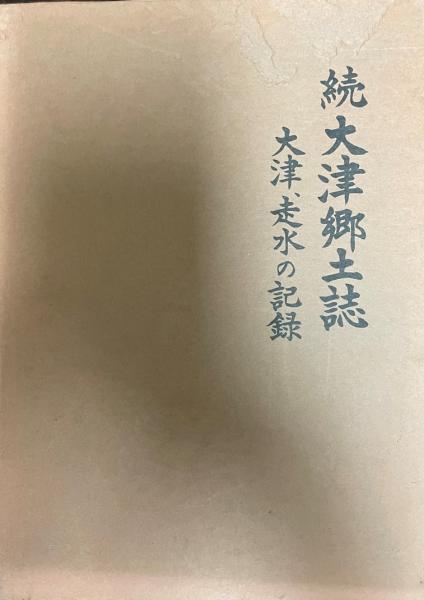 続大津郷土誌
大津、走水の記録